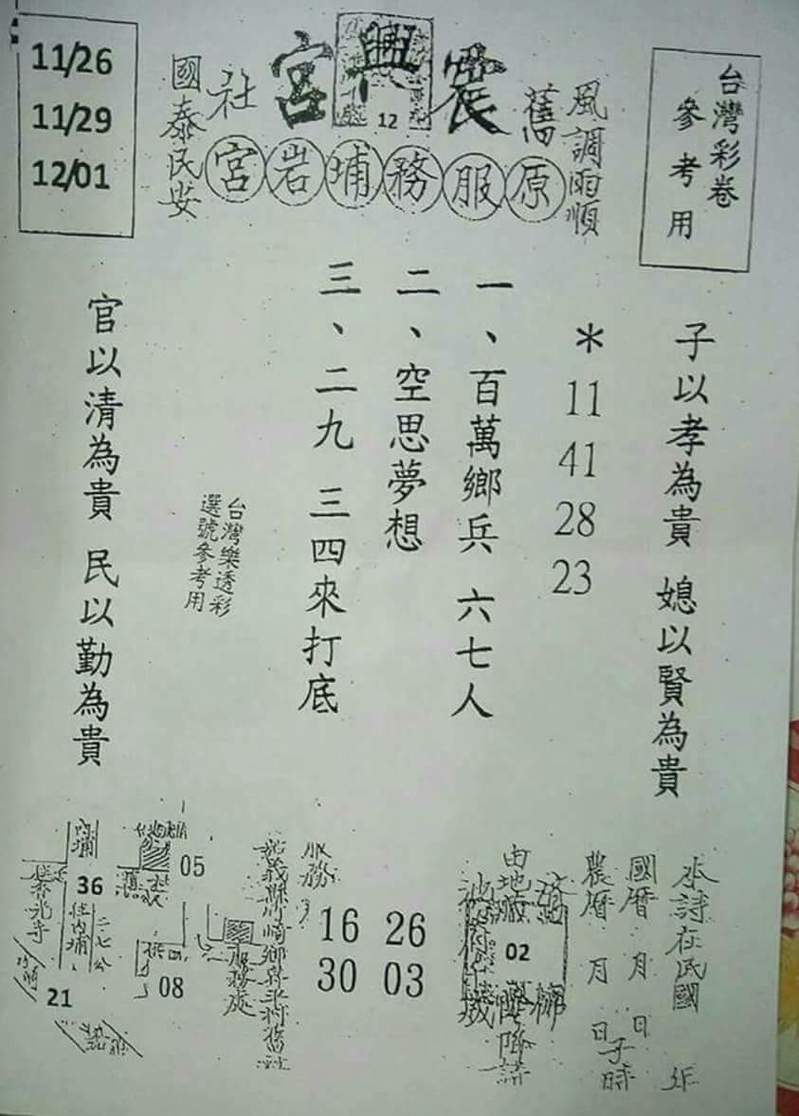 台灣彩卷
參考用
風調雨順
舊
震興宮
12
社
國泰民安
原服務埔岩宮
11/26
11/29
12/01
子以孝為貴 媳以賢為貴
*11 41 28 23
一、百萬鄉兵 六七人
二、空思夢想
三、二九 三四來打底
台灣樂透彩
選號參考用
官以清為貴 民以勤為貴
本詩在民國 年
國曆 月 日
農曆 月 日子時
02
26
03
服務
16
30
05
08
內埔
36
二七公
21